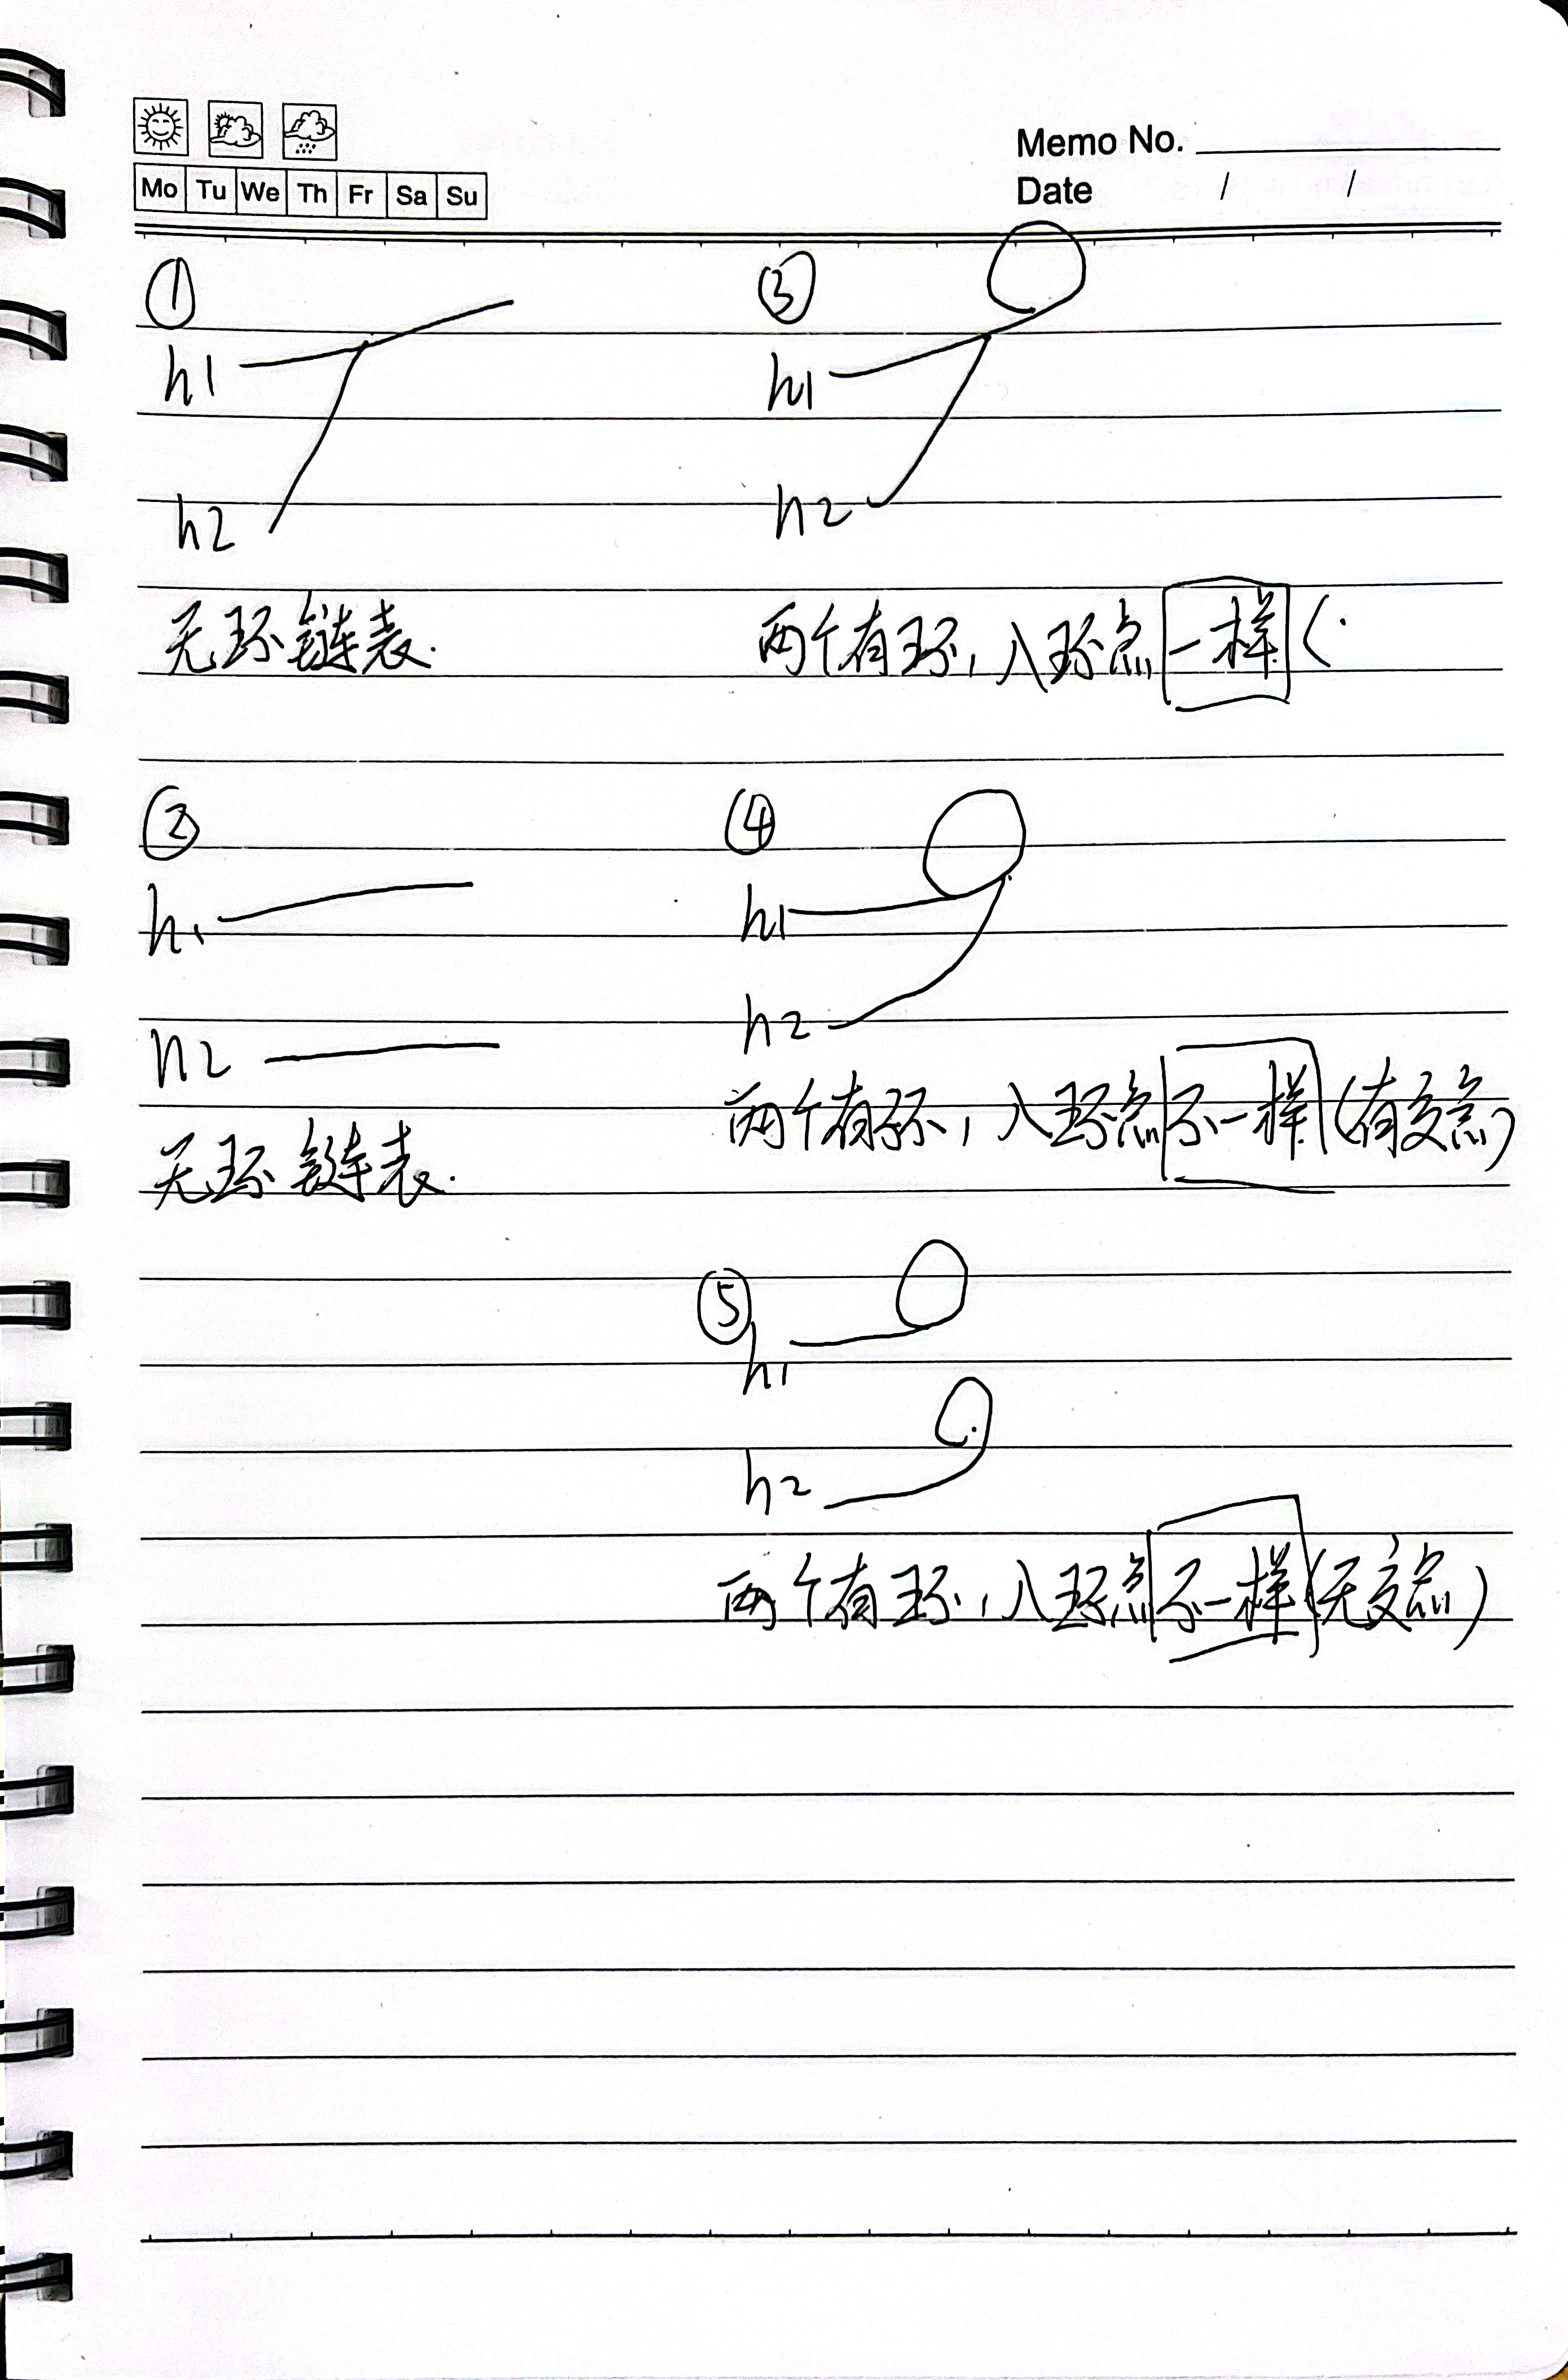 Mo Tu We Th Fr Sa Su
Memo No.
Date / /
①
h1
h2
无环链表.
③
h1
h2
两个有环, 入环点一样(
②
h1
h2
无环链表.
④
h1
h2
两个有环, 入环点不一样(有交点)
⑤
h1
h2
两个有环, 入环点不一样(无交点)